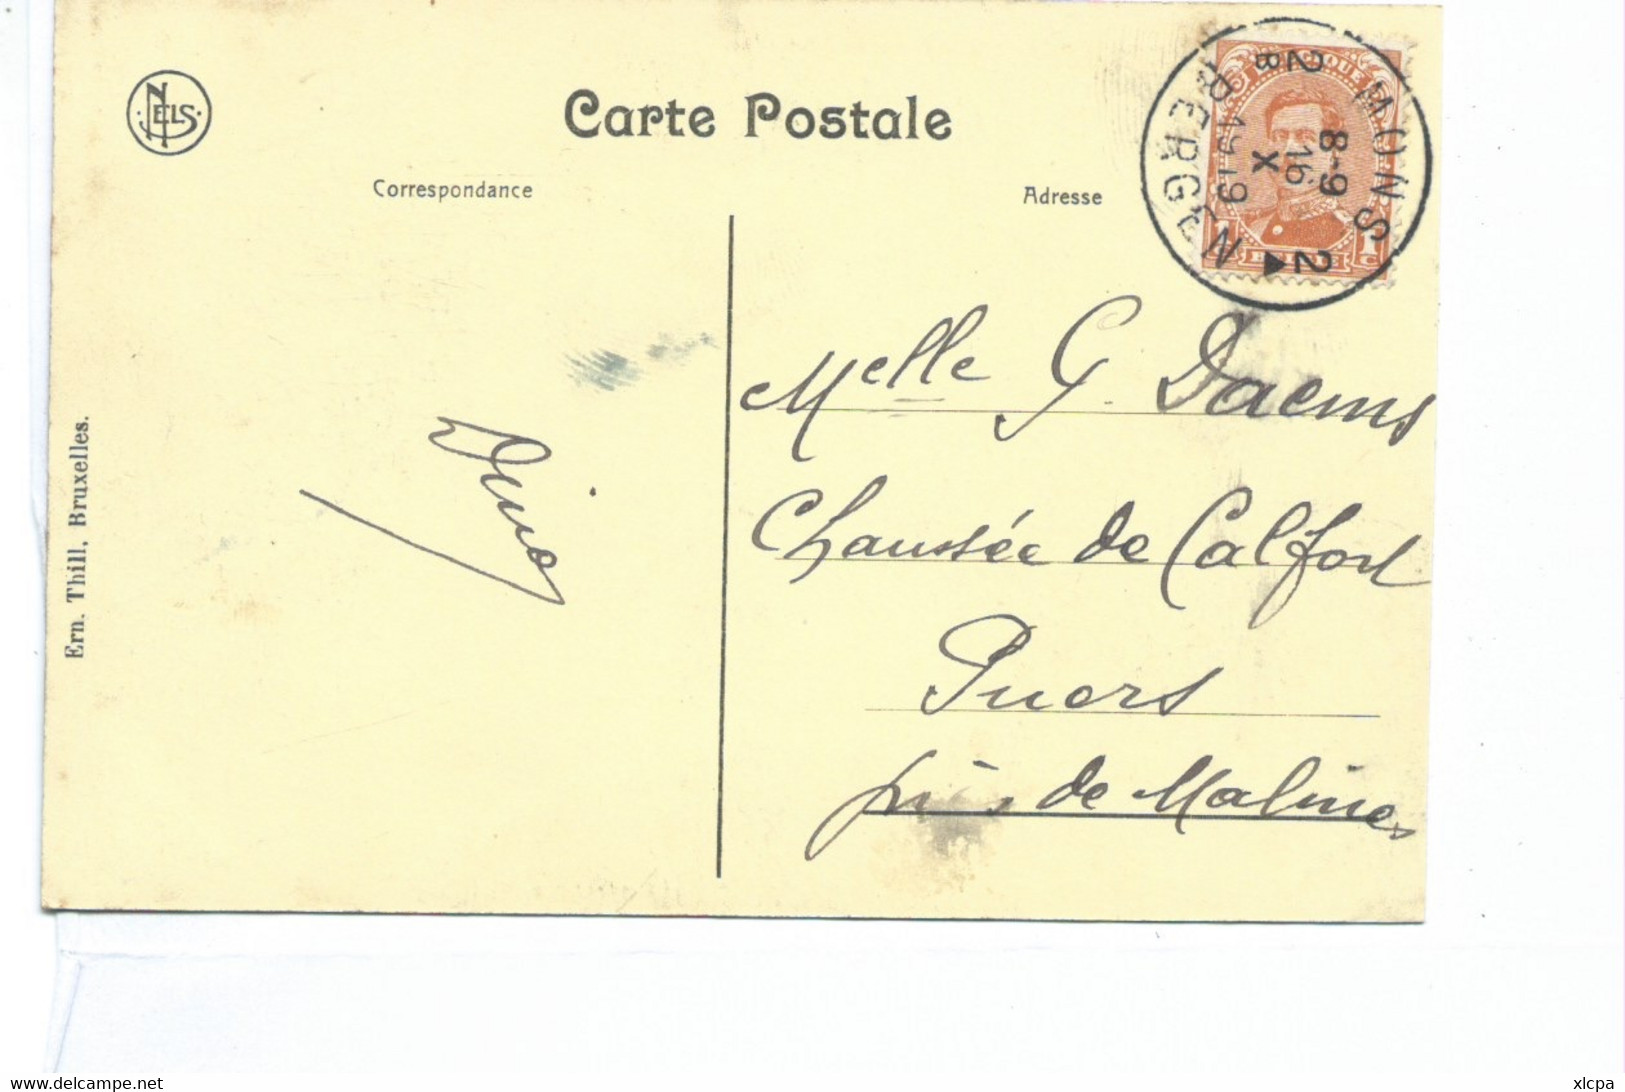 NELS
Carte Postale
Correspondance
Adresse
MONS 2
BERGEN
8-9
16
X
1919
2 B
BELGIQUE
BELGIË
1 C
Melle G. Daems
Chaussée de Calfort
Puers
près de Malines
Ern. Thill, Bruxelles.
www.delcampe.net
xlcpa